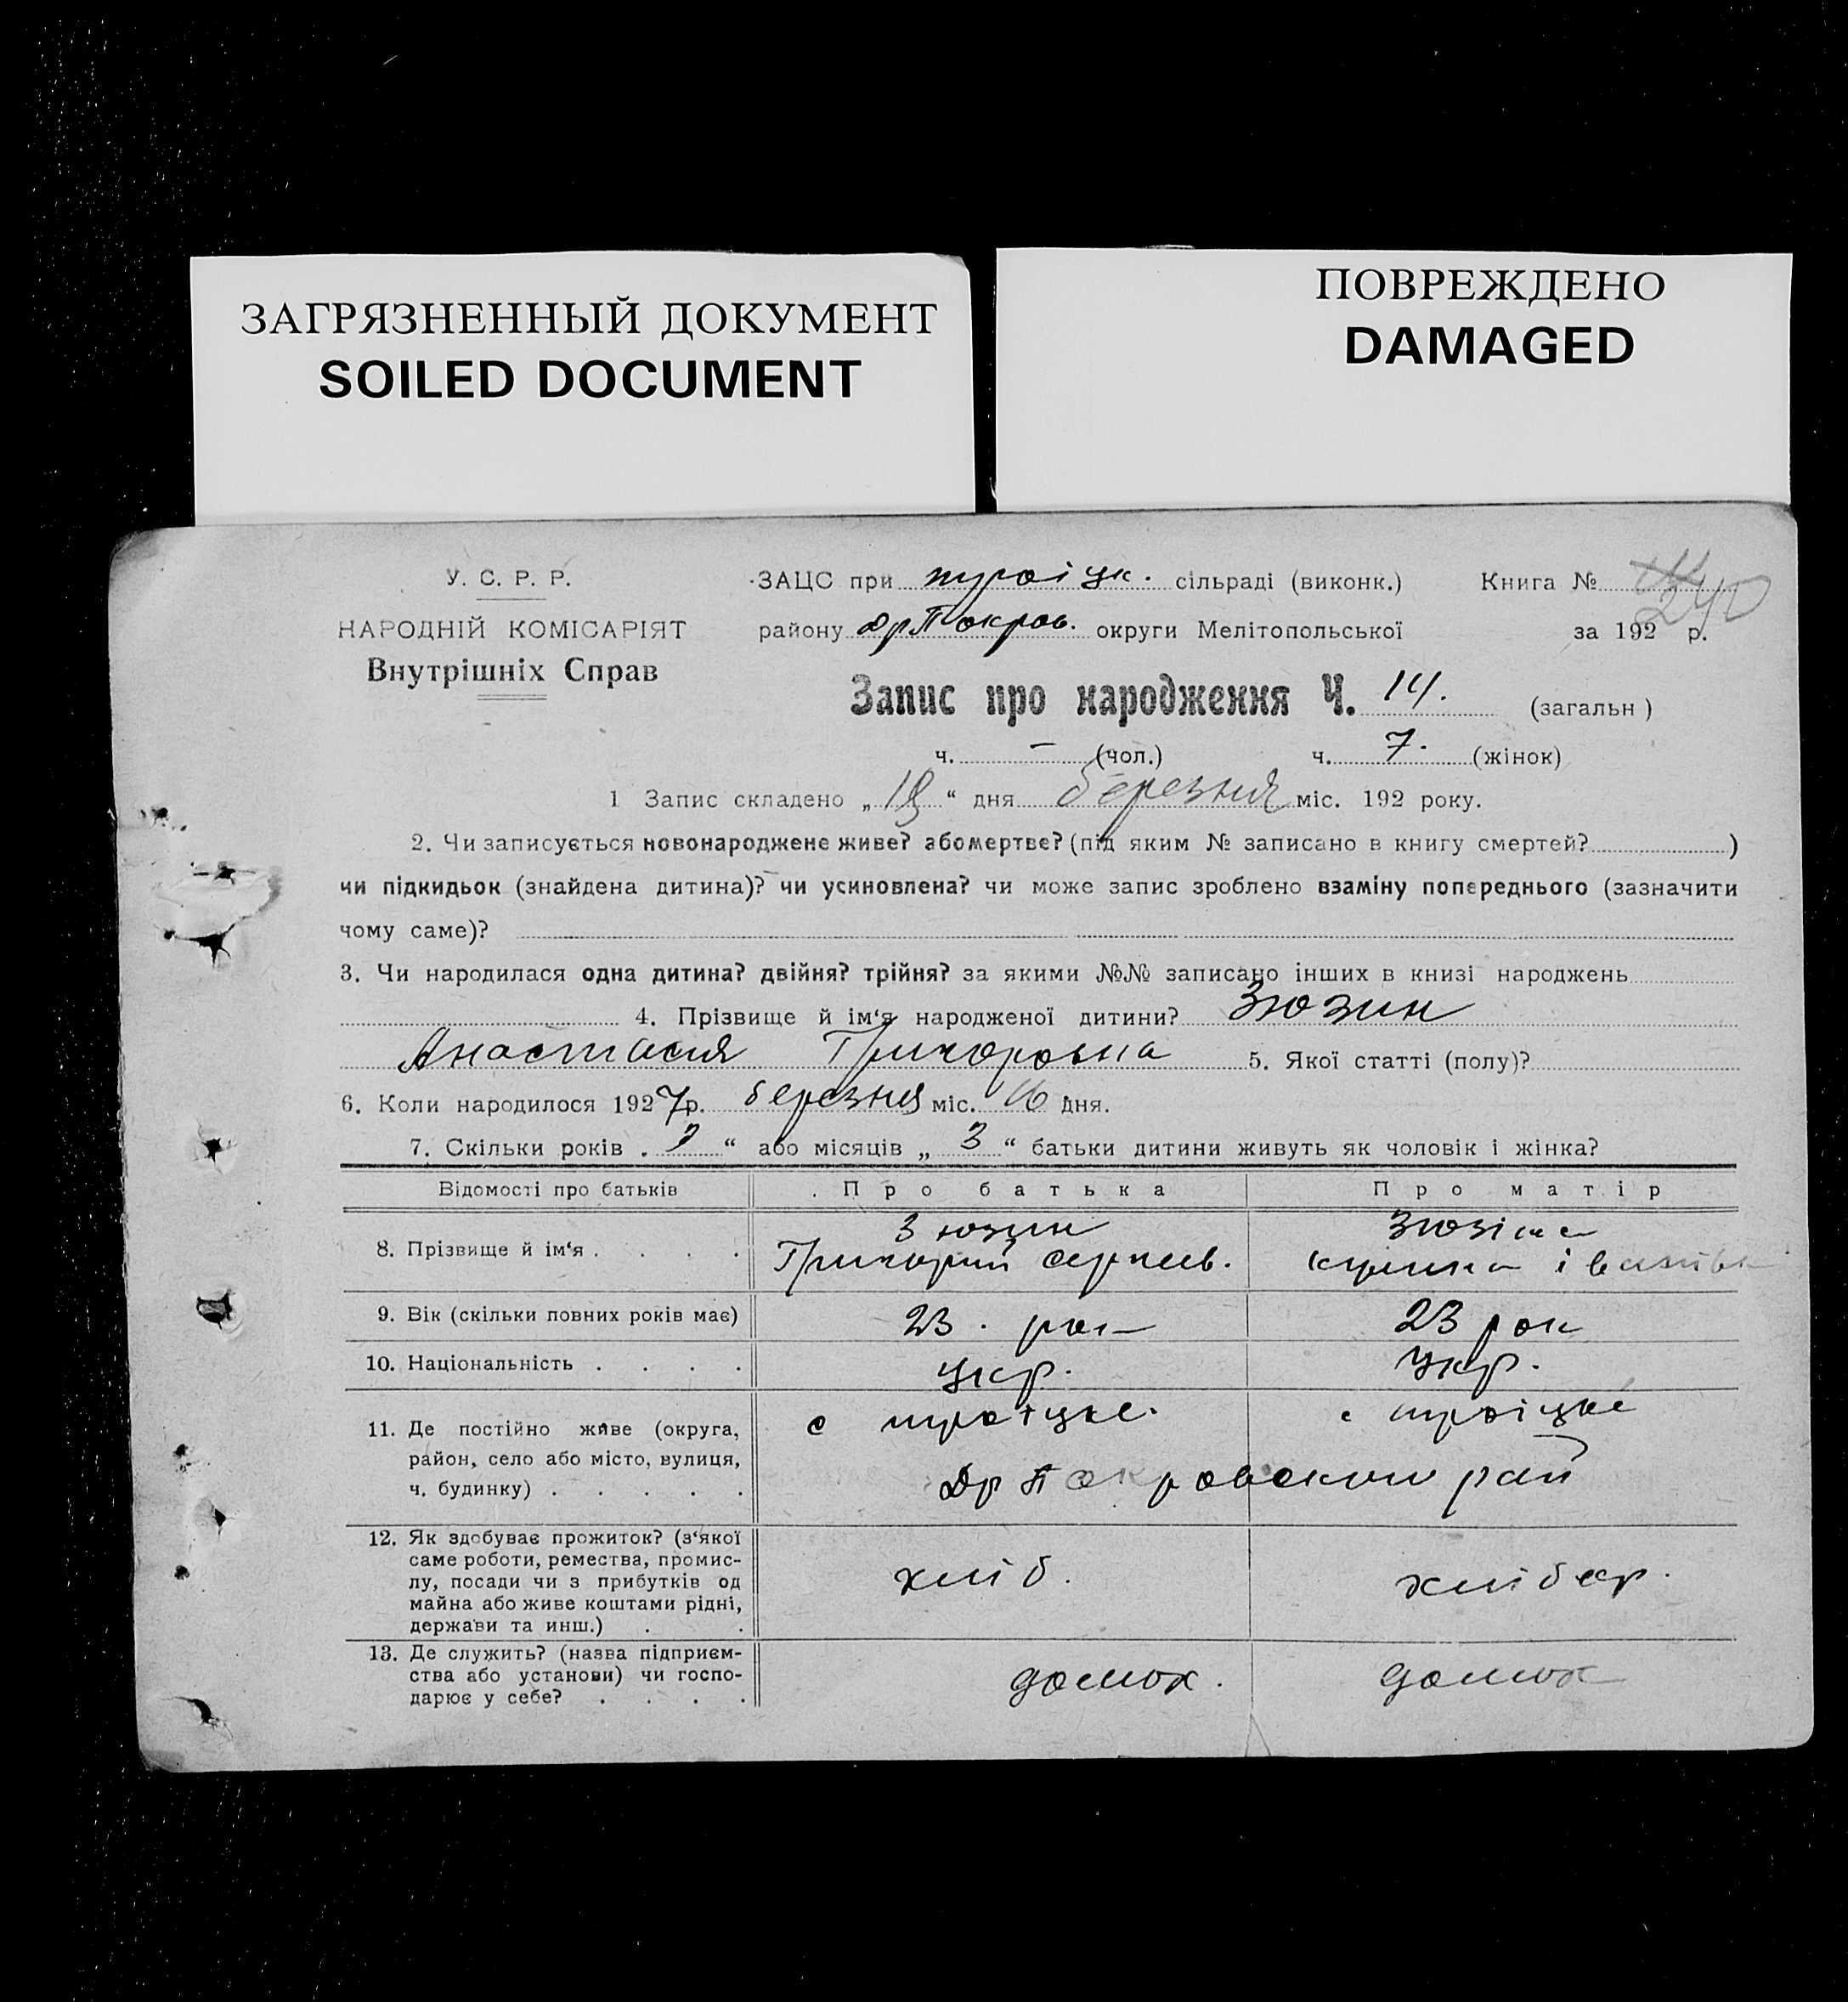 ЗАГРЯЗНЕННЫЙ ДОКУМЕНТ
SOILED DOCUMENT
ПОВРЕЖДЕНО
DAMAGED
У. С. Р. Р.
НАРОДНІЙ КОМІСАРІЯТ
Внутрішніх Справ
ЗАЦС при троіцк. сільраді (виконк.)
району ДрПокров. округи Мелітопольської
Книга № 240
за 192 р.
Запис про народження Ч. 14. (загальн)
ч. – (чол.) ч. 7. (жінок)
1 Запис складено „18“ дня березня міс. 192 року.
2. Чи записується новонароджене живе? або мертве? (під яким № записано в книгу смертей? )
чи підкидьок (знайдена дитина)? чи усиновлена? чи може запис зроблено взаміну попереднього (зазначити
чому саме)?
3. Чи народилася одна дитина? двійня? трійня? за якими №№ записано інших в книзі народжень
4. Прізвище й ім‘я народженої дитини? Зюзин
Анастасия Григоровна 5. Якої статті (полу)?
6. Коли народилося 1927 р. березня міс. 16 дня.
7. Скільки років „ “ або місяців „ 3 “ батьки дитини живуть як чоловік і жінка?
Відомості про батьків Про батька Про матір
8. Прізвище й ім‘я . . . . Зюзин Зюзіна
Григорий Сергеев.
9. Вік (скільки повних років має) 23. рок 23 рок
10. Національність . . . . укр. укр.
11. Де постійно живе (округа,
район, село або місто, вулиця,
ч. будинку) . . . . .
с троіцке. с троіцке
ДрПокровском рай
12. Як здобуває прожиток? (з‘якої
саме роботи, ремества, промис-
лу, посади чи з прибутків од
майна або живе коштами рідні,
держави та инш.) . .
хліб. хлібор.
13. Де служить? (назва підприєм-
ства або установи) чи госпо-
дарює у себе? . . . .
домох. домох